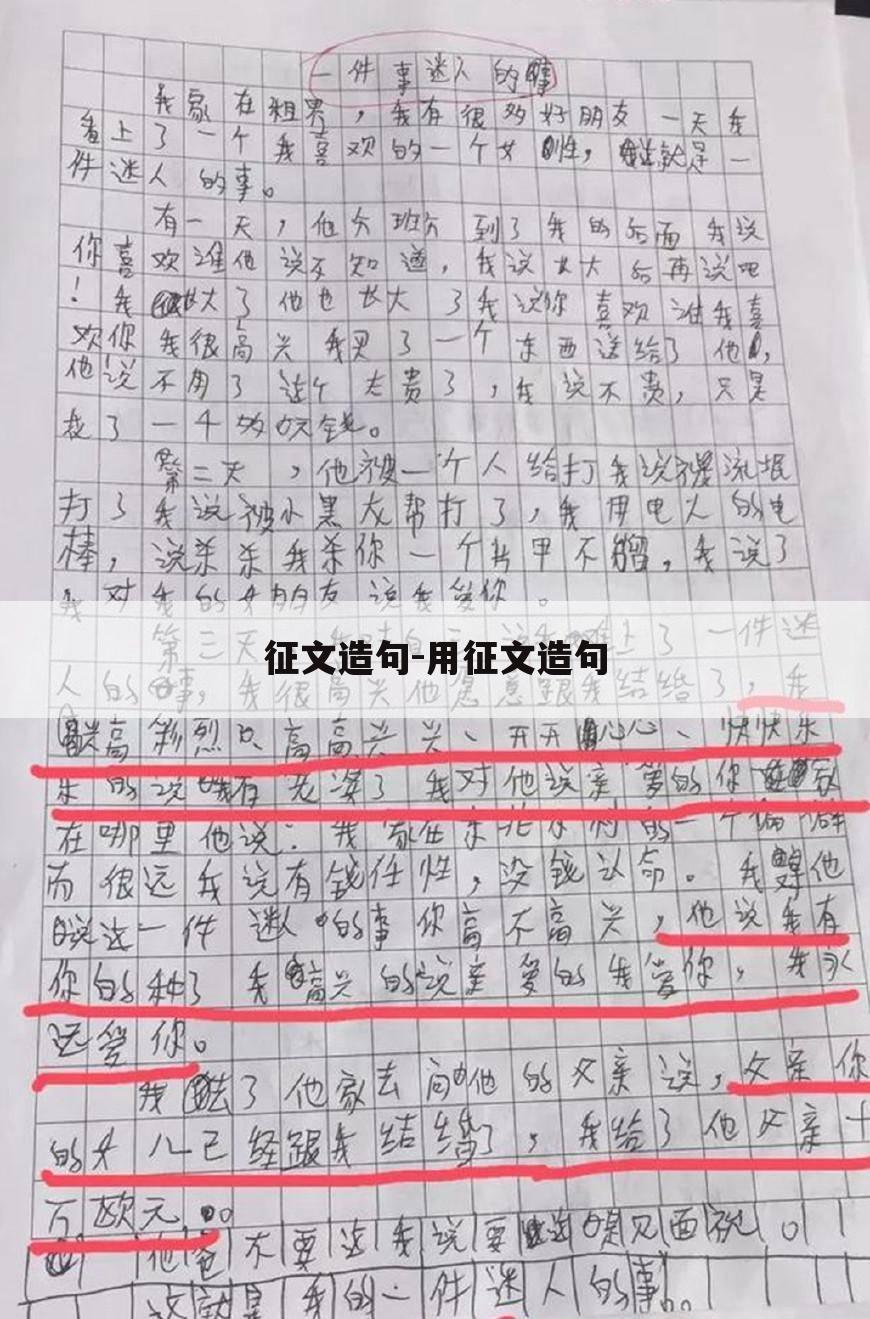 一件事迷人的事
我家在祖界，我有很多好朋友一天我
看上了一个我喜欢的一个女性，就是一
件迷人的事。
有一天，他分班分到了我的后面我说
你喜欢谁他说不知道，我说长大后再说吧
！我长大了他也长大了我说你喜欢谁我喜
欢你我很高兴我买了一个东西送给了他，
他说不用了这个太贵了，我说不贵，只是
我了一千多块钱。
第二天，他被一个人给打我说谁流氓
打了我说被小黑龙帮打了，我用电人的电
棒，说杀杀我杀你一个片甲不留，我说了
我对我的女朋友说我爱你。
第三天，上了一件迷
人的事，我很高兴他愿意跟我结婚了，我
征文造句-用征文造句
兴高彩烈的、高高兴兴、开开心心、快快乐
乐的说我有老婆了我对他说亲爱的你家
在哪里他说：我家住东北农村的一个偏僻
而很远我说有钱任性，没钱认命。我对他
说这一件迷人的事你高不高兴，他说我有
你的种了我高兴的说亲爱的我爱你，我永
远爱你。
我去了他家去问他的父亲说，父亲你
的女儿已经跟我结婚了，我给了他父亲十
万欧元。
他爸不要这我说要这是见面礼。
这就是我的一件迷人的事。